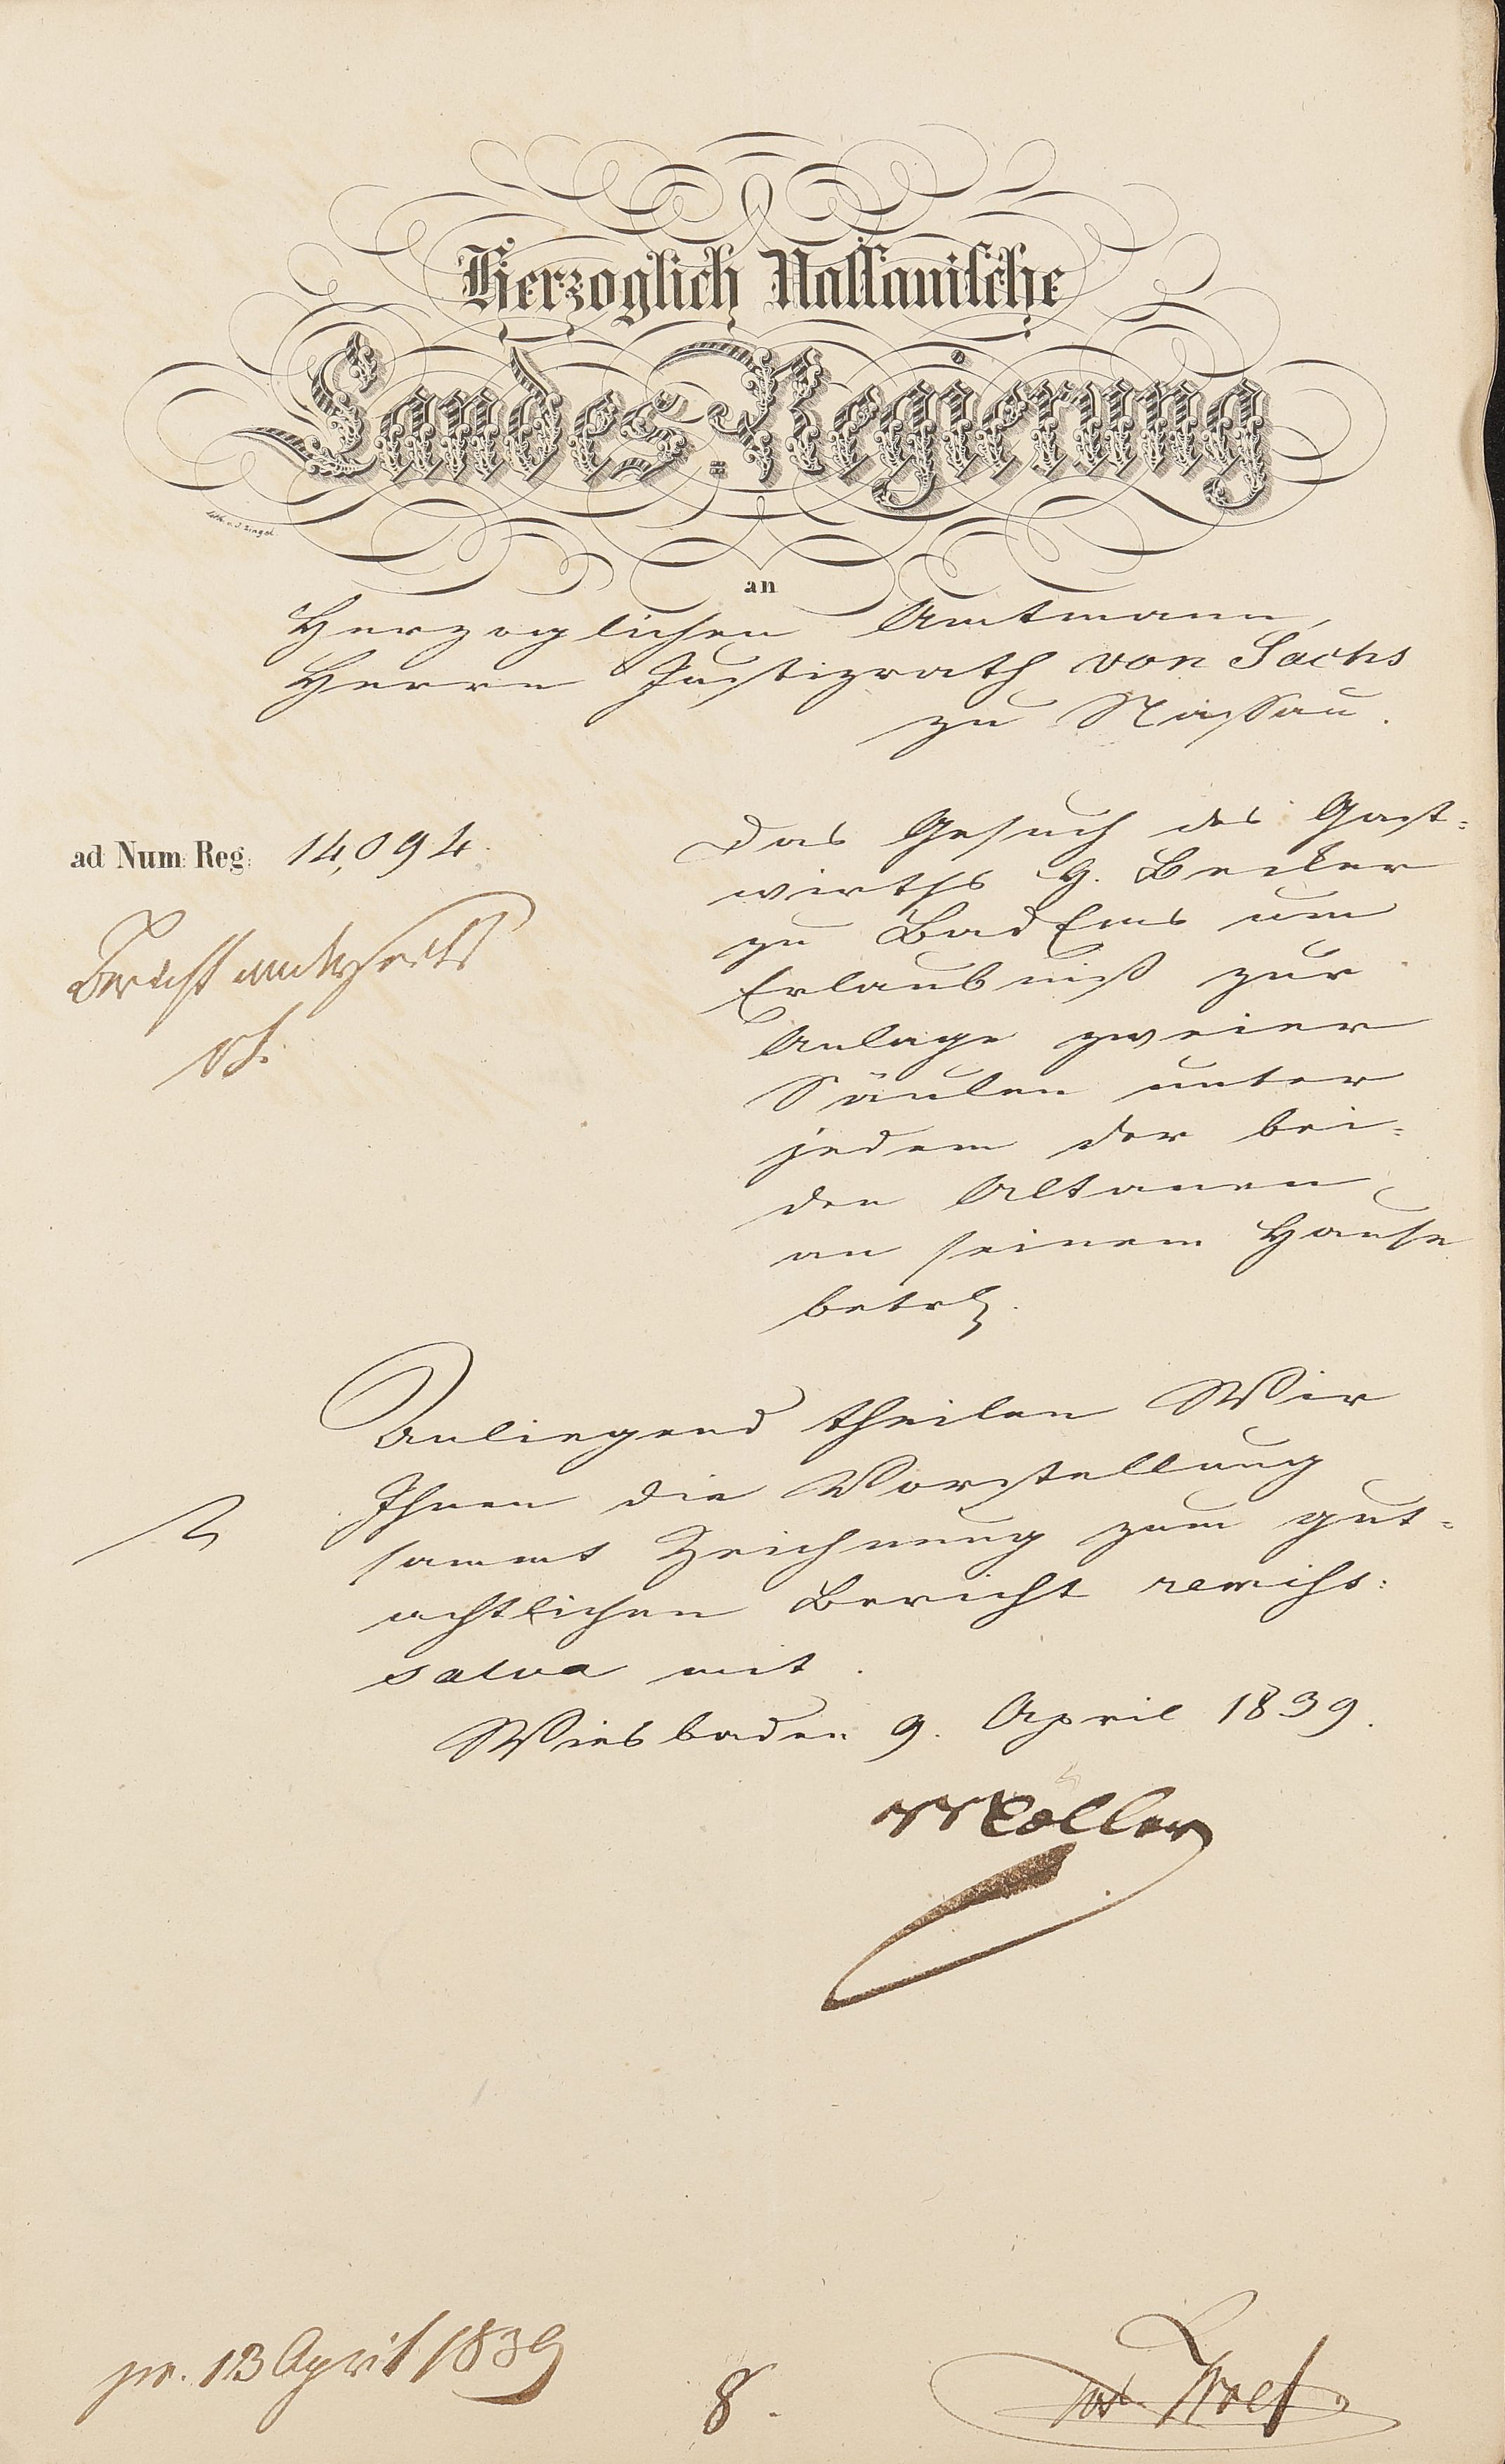 Herzoglich Nassauische
Landes-Regierung
an
Herzoglichen Amtmann,
Herrn Justizrath von Sachs
zu Nassau.
ad Num: Reg: 14,094.
Das Gesuch des Gast-
wirths G. Becker
zu Bad Ems um
Erlaubniß zur
Anlage zweier
Säulen unter
jedem der bei-
den Altanen
an seinem Hause
betr.
Bericht
Anliegend theilen Wir
Ihnen die Vorstellung
sammt Zeichnung zum gut-
achtlichen Bericht remiss:
salva mit.
Wiesbaden 9. April 1839.
Möller
pr. 13 April 1839
8.